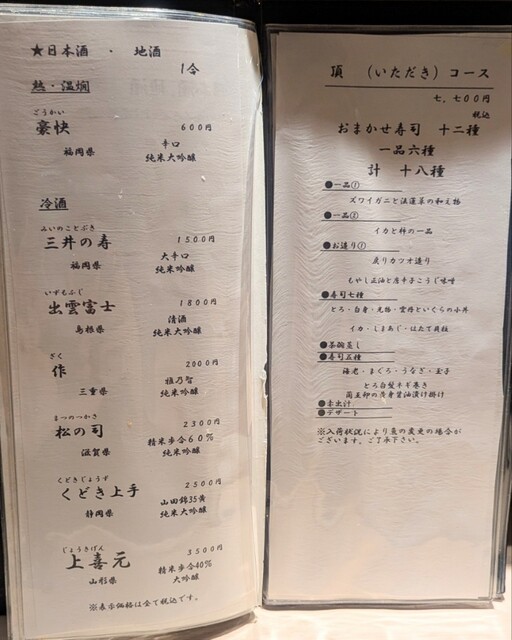 ★日本酒 ・ 地酒
1合
熱・温燗
ごうかい
豪快 600円
福岡県 辛口
純米大吟醸
冷酒
みいのことぶき
三井の寿 1500円
福岡県 大辛口
純米大吟醸
いずもふじ
出雲富士 1800円
島根県 清酒
純米大吟醸
ざく
作 2000円
三重県 雅乃智
純米大吟醸
まつのつかさ
松の司 2300円
滋賀県 精米歩合60%
純米吟醸
くどきじょうず
くどき上手 2500円
静岡県 山田錦35貴
純米大吟醸
じょうきげん
上喜元 3500円
山形県 精米歩合40%
大吟醸
※表示価格は全て税込です。
頂 (いただき) コース
七,七００円
税込
おまかせ寿司 十二種
一品六種
計 十八種
●一品①
ズワイガニと法蓮草の和え物
●一品②
イカと柿の一品
●お造り①
戻りカツオ造り
もやし正油と唐辛子こうじ味噌
●寿司七種
とろ・白身・光物・雲丹といくらの小丼
イカ・しまあじ・ほたて貝柱
●茶碗蒸し
●寿司五種
海老・まぐろ・うなぎ・玉子
とろ白髪ネギ巻き
蘭王卵の黄身醤油漬け掛け
●赤出汁
●デザート
※入荷状況により魚の変更の場合が
ございます。ご了承下さい。